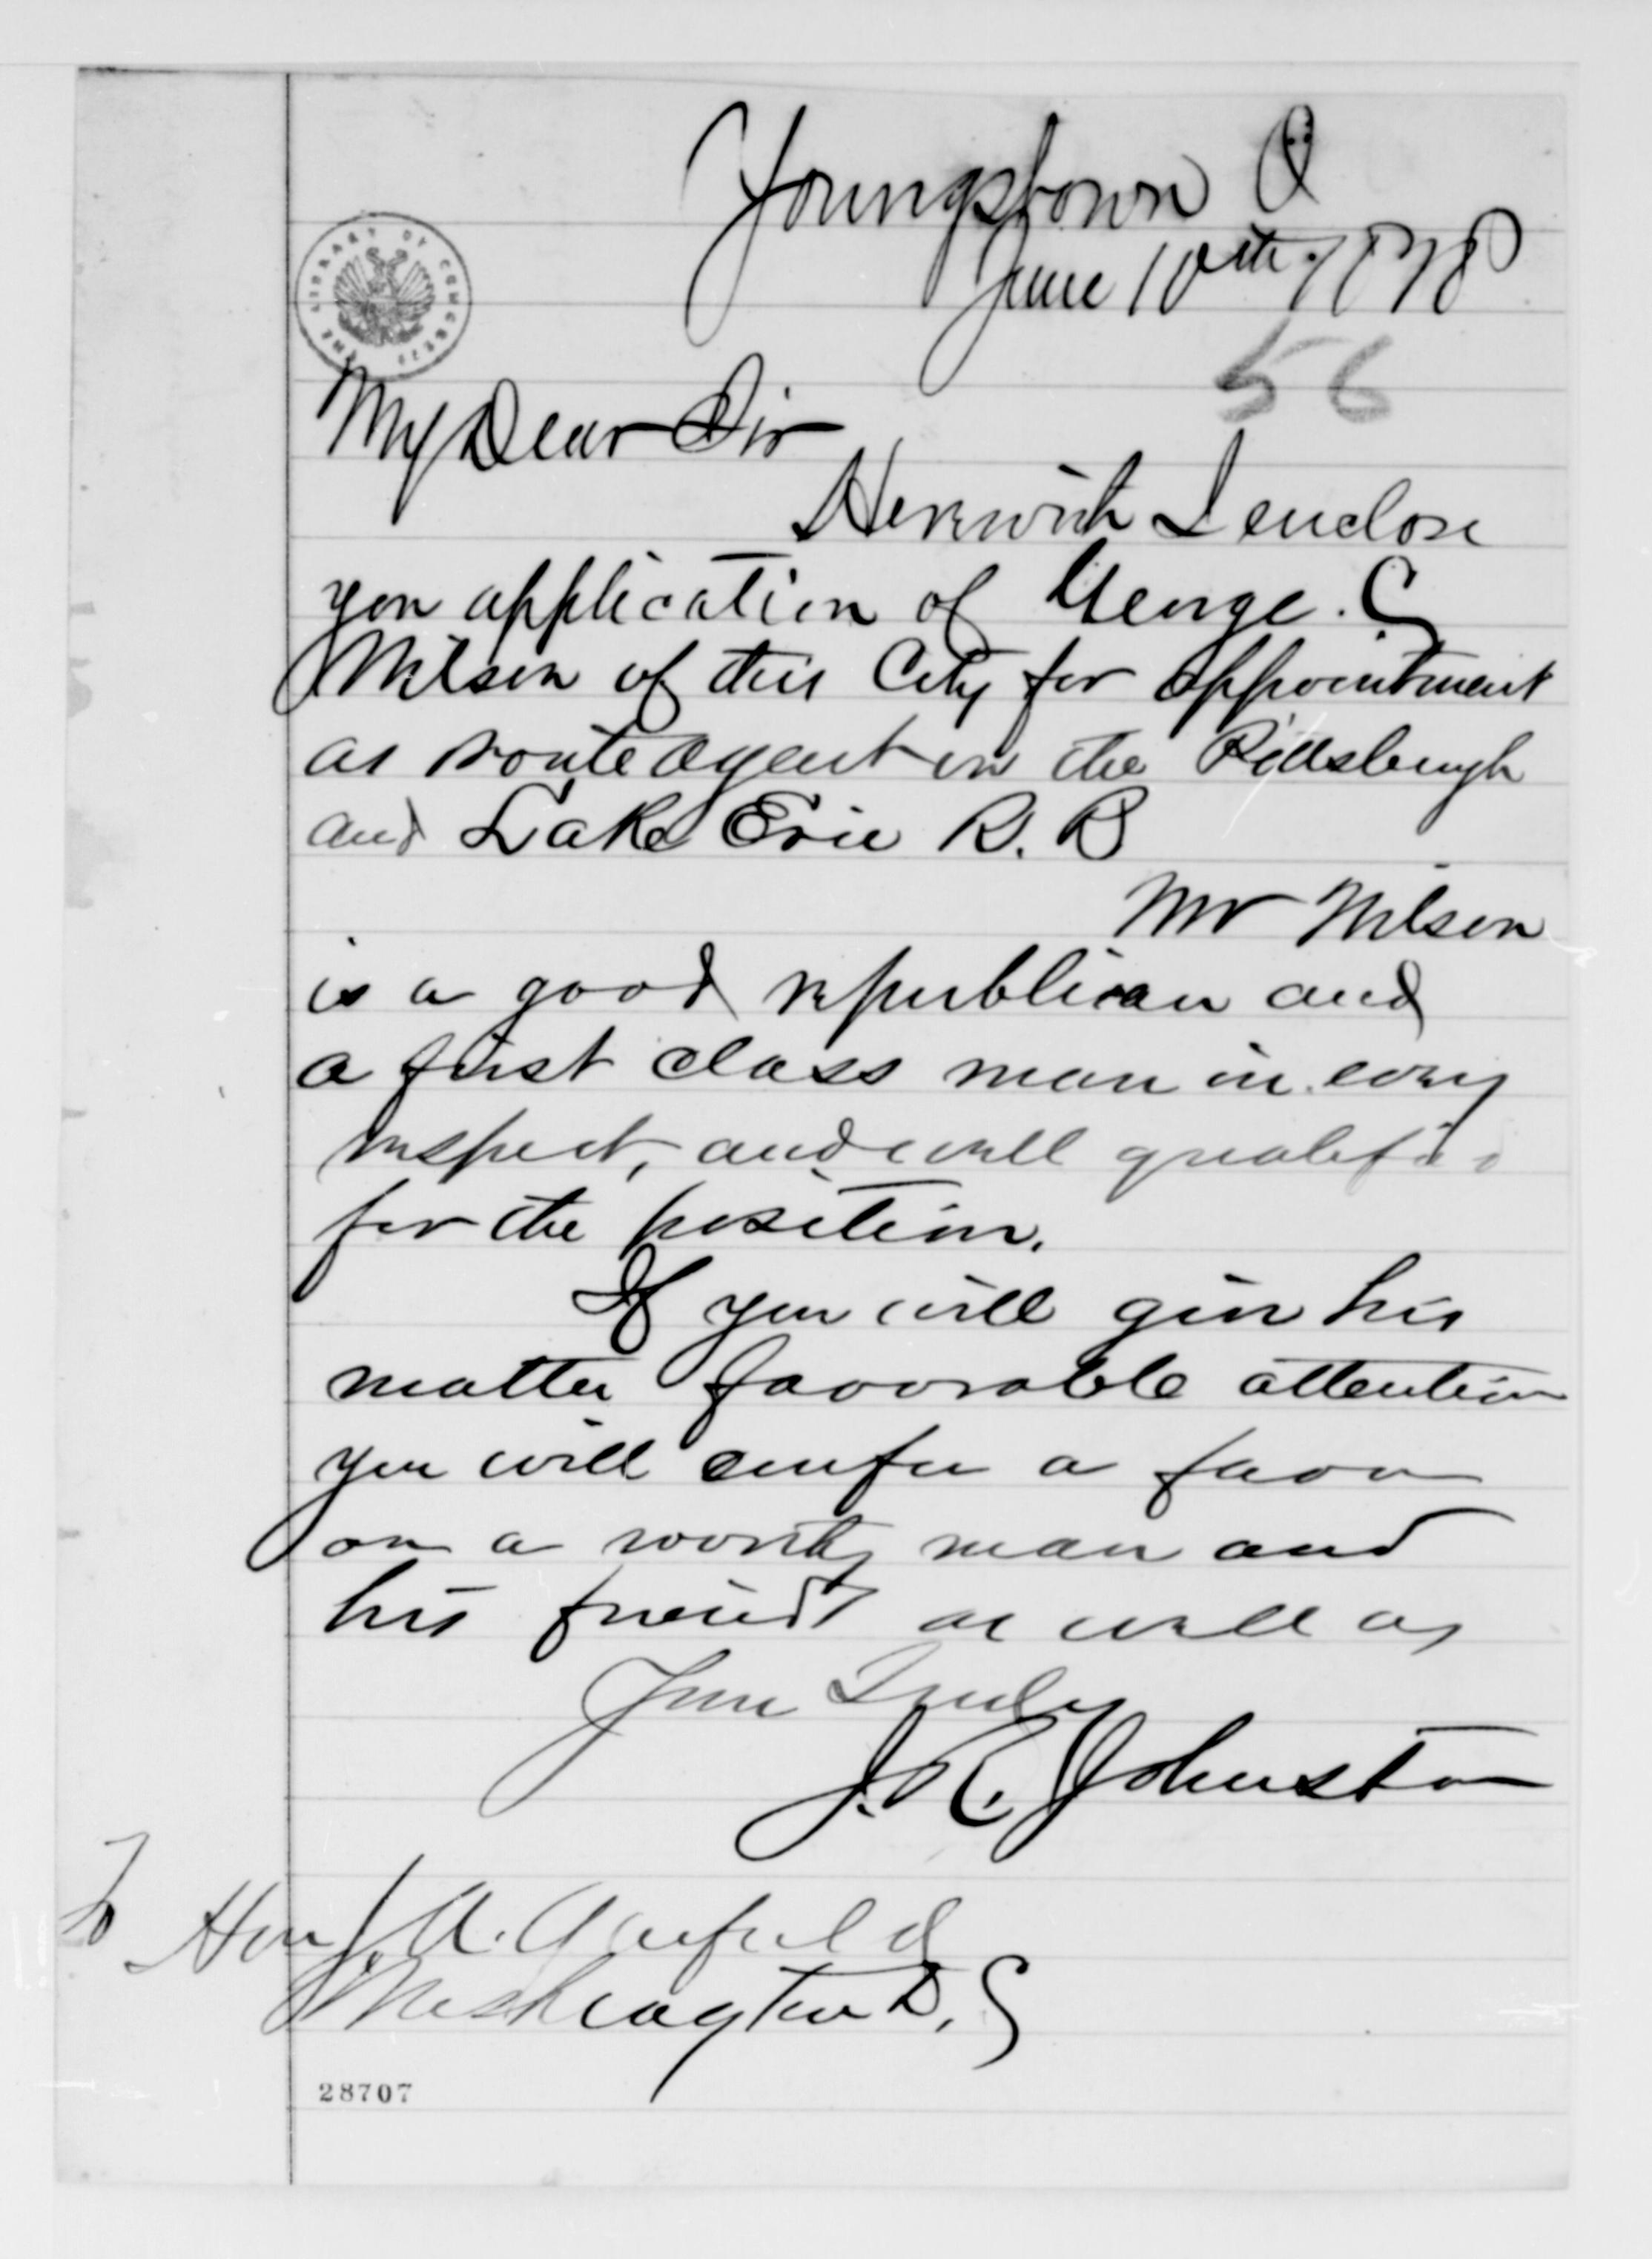 Youngstown O
June 10th, 1878
56
THE LIBRARY OF CONGRESS
My Dear Sir
Herewith I enclose
you application of George. C
Wilson of this City for appointment
as route agent on the Pittsburgh
and Lake Erie R. R
Mr Wilson
is a good republican and
a first class man in every
respect, and well qualified
for the position.
If you will give his
matter favorable attention
you will confer a favor
on a worthy man and
his friends as well as
Yours Truly
J. R. Johnston
To Hon J. A. Garfield
Washington D, C
28707